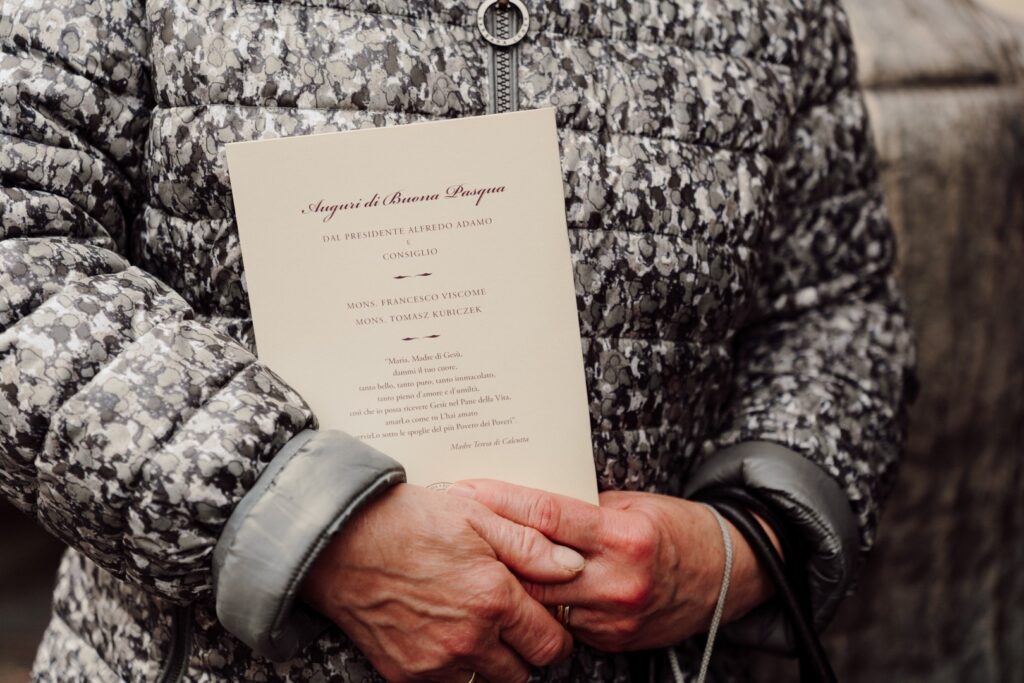 Auguri di Buona Pasqua
DAL PRESIDENTE ALFREDO ADAMO
E
CONSIGLIO
MONS. FRANCESCO VISCOME
MONS. TOMASZ KUBICZEK
"Maria, Madre di Gesù,
dammi il tuo cuore,
tanto bello, tanto puro, tanto immacolato,
tanto pieno d'amore e d'umiltà,
così che io possa ricevere Gesù nel Pane della Vita,
amarLo come tu L'hai amato
servirLo sotto le spoglie del più Povero dei Poveri".
Madre Teresa di Calcutta